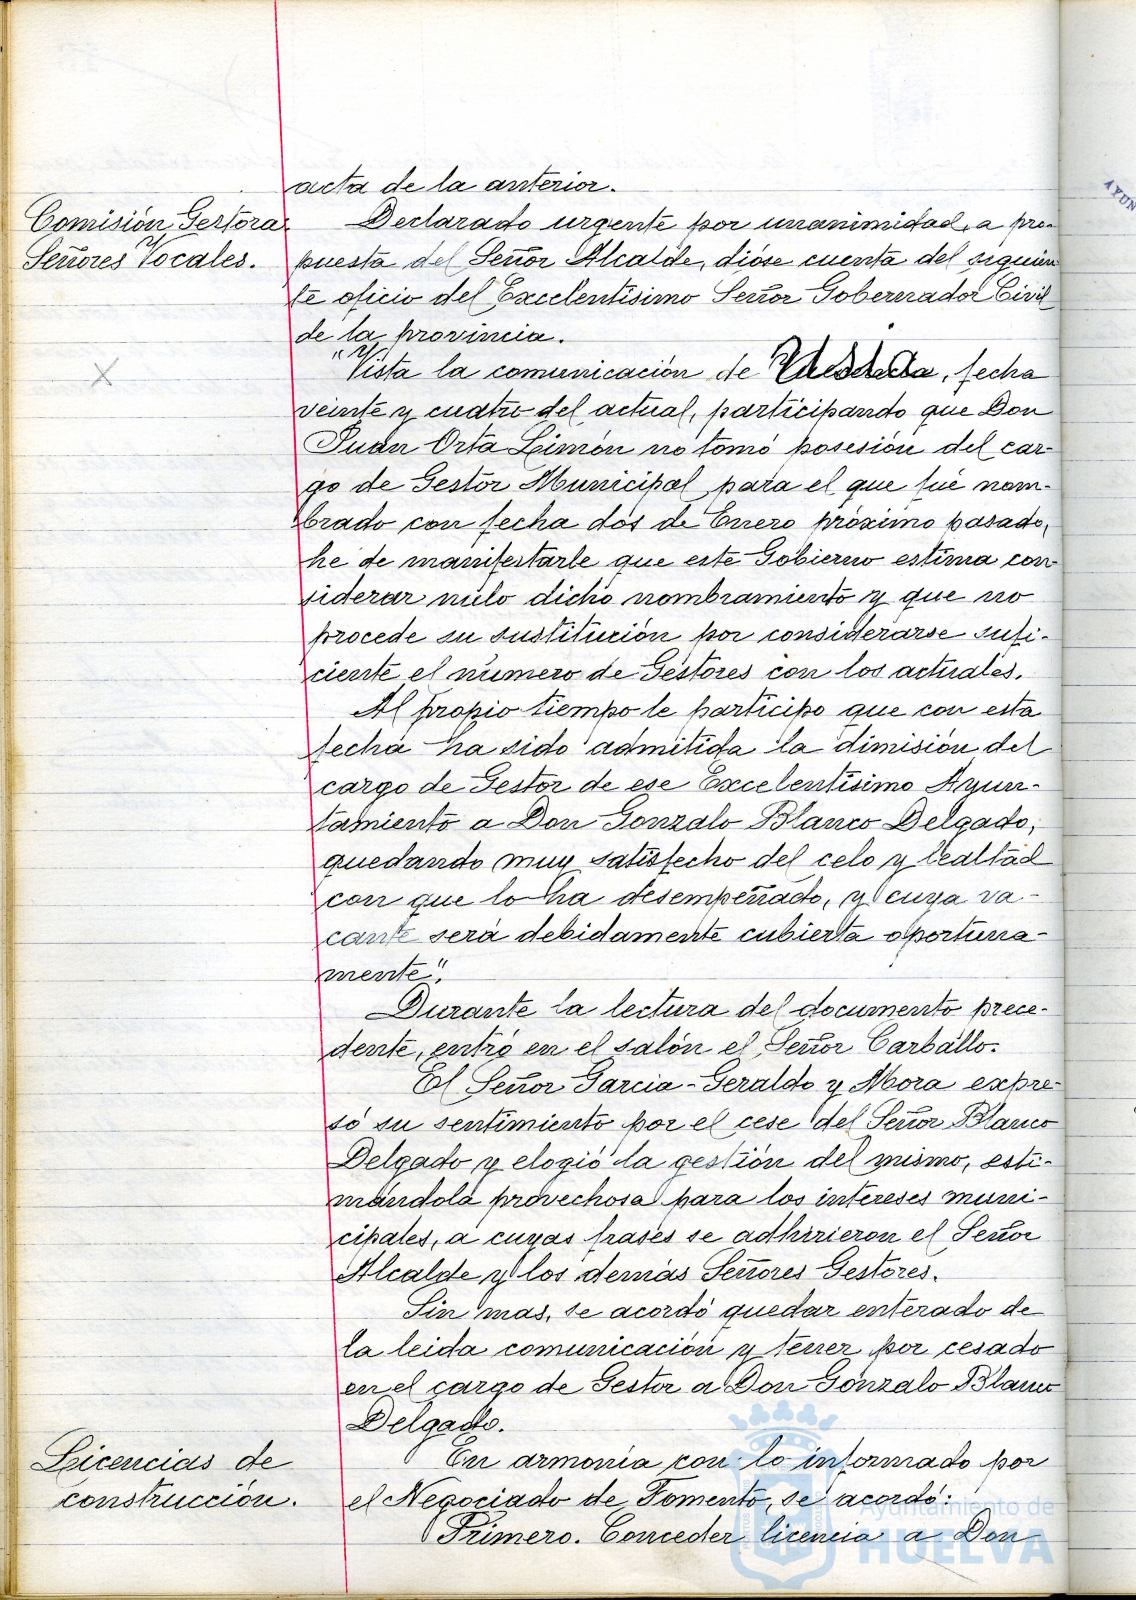 acta de la anterior.
Comisión Gestora
Señores Vocales.
Declarado urgente por unanimidad, a pro-
puesta del Señor Alcalde, dióse cuenta del siguien
te oficio del Excelentisimo Señor Gobernador Civil
de la provincia.
"Vista la comunicación de , fecha
veinte y cuatro del actual, participando que Don
Juan Orta Limón no tomó posesión del car-
go de Gestor Municipal para el que fué nom-
brado con fecha dos de Enero próximo pasado,
he de manifestarle que este Gobierno estima con-
siderar nulo dicho nombramiento y que no
procede su sustitución por considerarse sufi-
ciente el número de Gestores con los actuales.
Al propio tiempo le participo que con esta
fecha ha sido admitida la dimisión del
cargo de Gestor de ese Excelentísimo Ayun-
tamiento a Don Gonzalo Blanco Delgado,
quedando muy satisfecho del celo y lealtad
con que lo ha desempeñado, y cuya va-
cante será debidamente cubierta oportuna-
mente".
Durante la lectura del documento prece-
dente, entró en el salón el Señor Carballo.
El Señor Garcia-Geraldo y Mora expre-
só su sentimiento por el cese del Señor Blanco
Delgado y elogió la gestión del mismo, esti-
mándola provechosa para los intereses muni-
cipales, a cuyas frases se adhirieron el Señor
Alcalde y los demás Señores Gestores.
Sin mas, se acordó quedar enterado de
la leida comunicación y tener por cesado
en el cargo de Gestor a Don Gonzalo Blanco
Delgado.
Licencias de
construcción.
En armonía con lo informado por
el Negociado de Fomento, se acordó:
Primero. Conceder licencia a Don
Ayuntamiento de
HUELVA